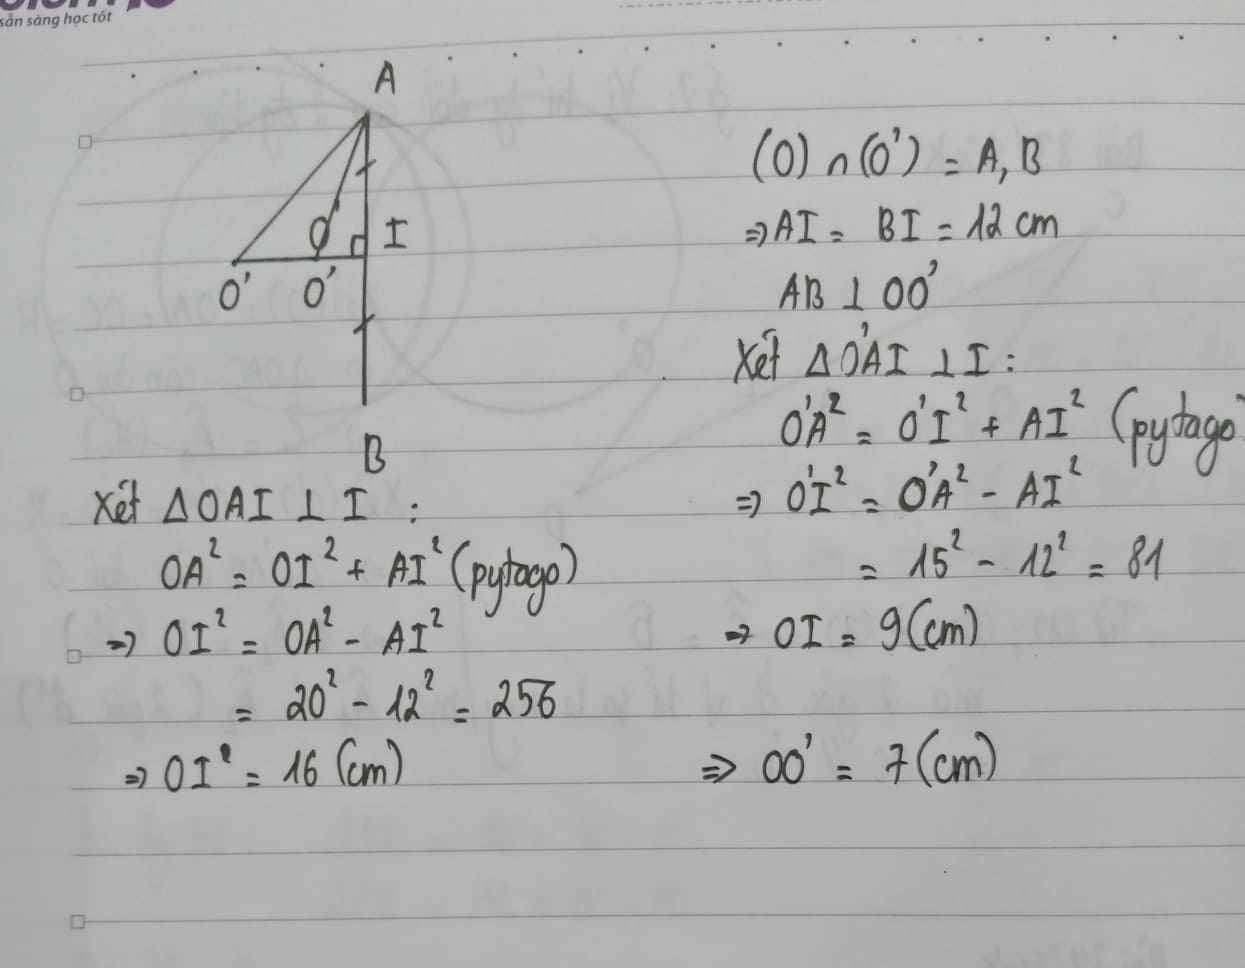 sẵn sàng học tốt
A
I
O' O'
B
(O) ∩ (O') = A, B
⇒ AI = BI = 12 cm
AB ⊥ OO'
Xét ΔO'AI ⊥ I :
O'A² = O'I² + AI² (pytago
⇒ O'I² = O'A² - AI²
= 15² - 12² = 81
⇒ OI = 9 (cm)
⇒ OO' = 7 (cm)
Xét ΔOAI ⊥ I :
OA² = OI² + AI² (pytago)
⇒ OI² = OA² - AI²
= 20² - 12² = 256
⇒ OI = 16 (cm)